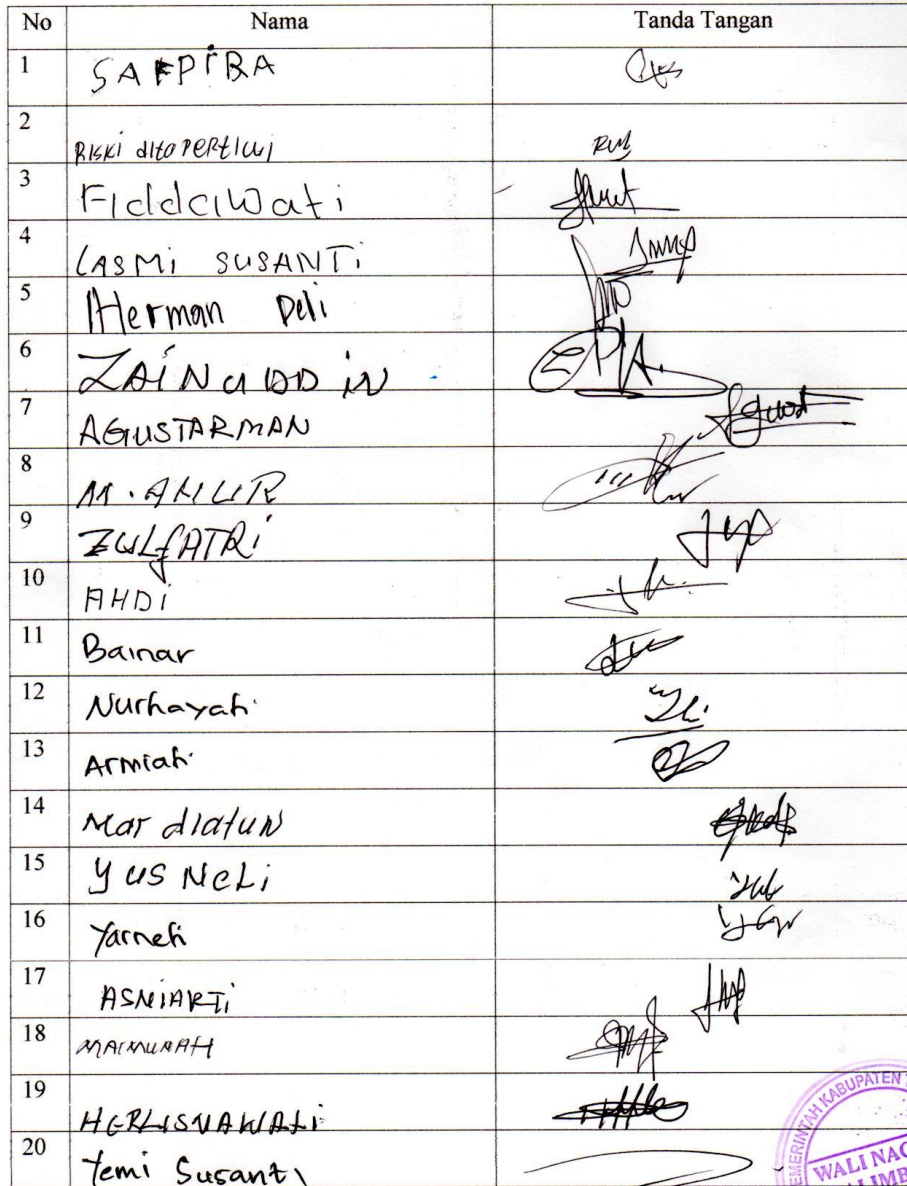 No Nama Tanda Tangan
1 SAFPIRA
2 RISKI dito PERtIWi
3 Fiddawati
4 LASMi SUSANTi
5 Herman Deli
6 ZAiNUDDiN
7 AGUSTARMAN
8 M. AMIR
9 ZULfATRi
10 AHDi
11 Bainar
12 Nurhayati
13 Armiati
14 Mardiatun
15 YUSNeLi
16 Yarneti
17 ASNiARTi
18 MAIMUNAH
19 HERLISNAWATi
20 Yemi Susanti
EMERINTAH KABUPATEN
WALI NAG